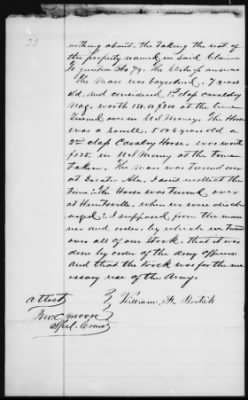 nothing about the taking the rest of
the property named in said Claim
To question No 79. the Claimant answers
The Mare was bay sorrel, 7 years
old, and considered 1st class cavalry
nag, worth in U.S. Money at the time
Turned over in U.S. Money. The Horse
was a sorrell. 5 or 6 years old a
2nd class Cavalry Horse, was worth
in U.S Money at the time
Taken. The mare was turned over
at Decatur Ala, I dont recollect the
time: The Horse was turned over
at Huntsville, when we were disch
arged: I supposed from the man
ner and order, by which we turned
over all of our stock that it was
done by order of the army officers
and that the stock was for the ne
cessary use of the Army.
attest
William H. Bostick
Spcl. Comr